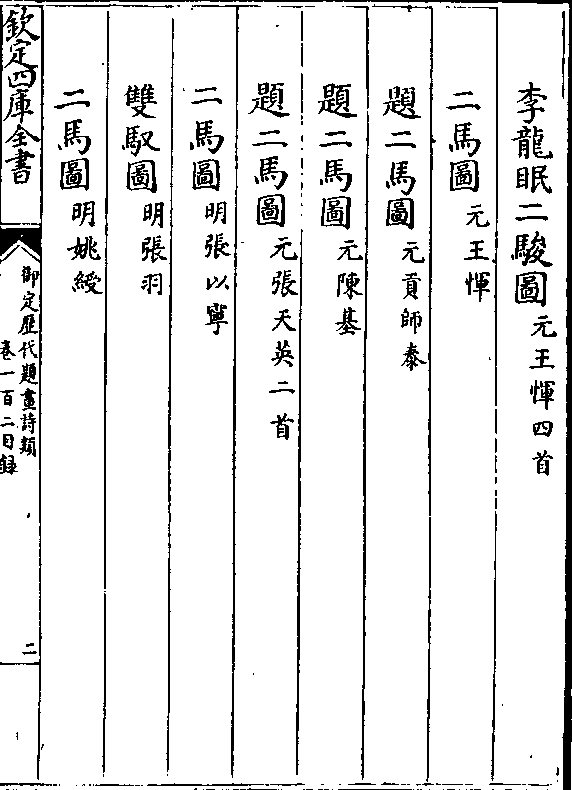 李龍眠二駿圖元王惲四首
二馬圖元王惲
題二馬圖元貢師泰
題二馬圖元陳基
題二馬圖元張天英二首
二馬圖明張以寧
雙馭圖明張羽
二馬圖明姚綬
欽定四庫全書
御定歷代題畫詩類
卷一百二目録
二